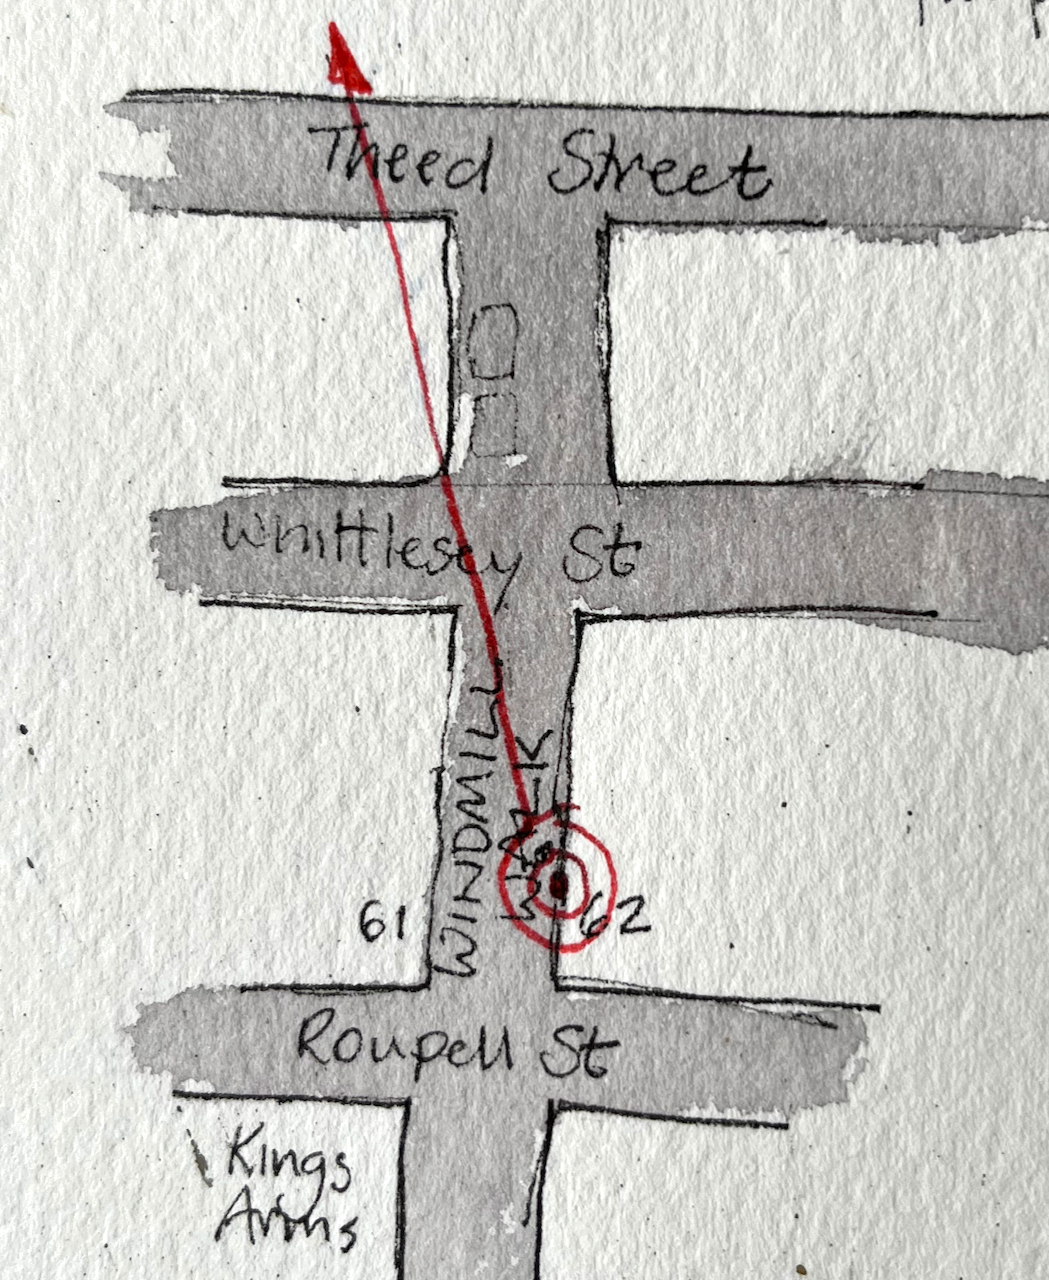 Theed Street
Whittlesey St
WINDMILL
WALK
61
62
Roupell St
Kings
Arms